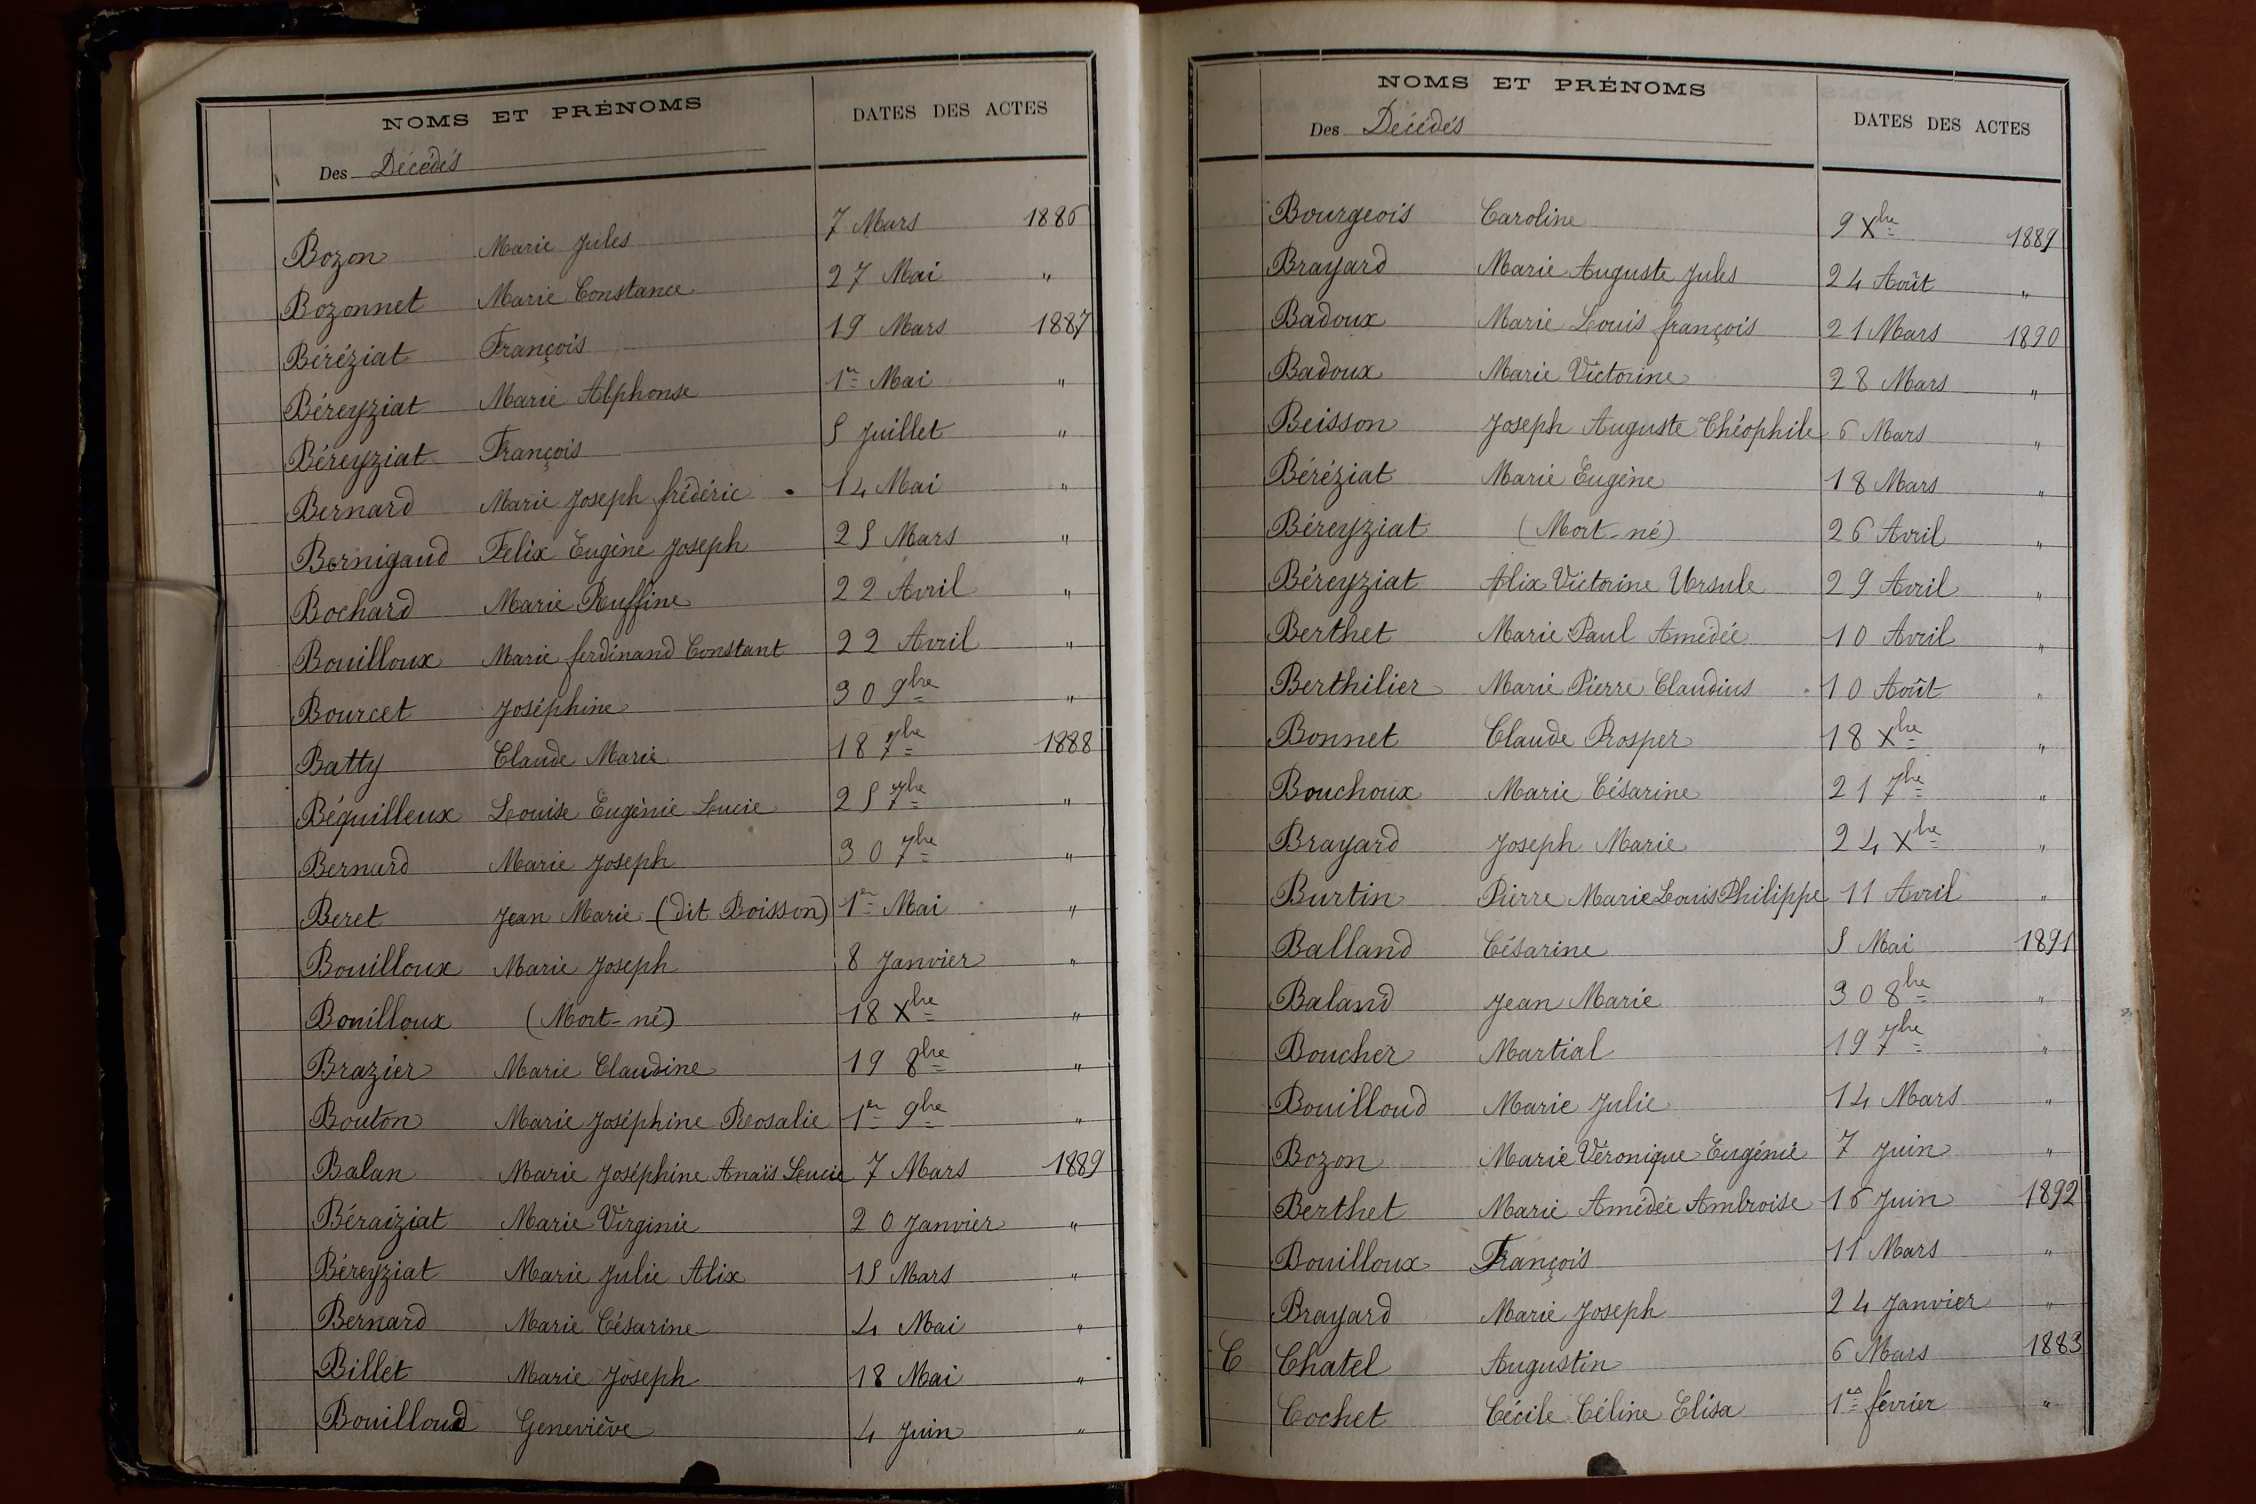 NOMS ET PRÉNOMS
DATES DES ACTES
Des Décédés
Bozon Marie Jules 7 Mars 1886
Bozonnet Marie Constance 27 Mai "
Béréziat François 19 Mars 1887
Béreyziat Marie Alphonse 1er Mai "
Béreyziat François 5 Juillet "
Bernard Marie Joseph frédéric 14 Mai "
Bernigaud Felix Eugène Joseph 25 Mars "
Bochard Marie Ruffine 22 Avril "
Bouilloux Marie ferdinand Constant 22 Avril "
Bourcet Joséphine 30 9bre "
Batty Claude Marie 18 7bre 1888
Béquilleux Louise Eugénie Lucie 25 7bre "
Bernard Marie Joseph 30 7bre "
Beret Jean Marie (dit Boisson) 1er Mai "
Bouilloux Marie Joseph 8 Janvier "
Bouilloux (Mort-né) 18 Xbre "
Brazier Marie Claudine 19 8bre "
Bouton Marie Joséphine Rosalie 1er 9bre "
Balan Marie Joséphine Anaïs Lucie 7 Mars 1889
Béraiziat Marie Virginie 20 Janvier "
Béreyziat Marie Julie Alix 15 Mars "
Bernard Marie Césarine 4 Mai "
Billet Marie Joseph 18 Mai "
Bouilloud Geneviève 4 Juin "
NOMS ET PRÉNOMS
DATES DES ACTES
Des Décédés
Bourgeois Caroline 9 Xbre 1889
Brayard Marie Auguste Jules 24 Août "
Badoux Marie Louis françois 21 Mars 1890
Badoux Marie Victorine 28 Mars "
Beisson Joseph Auguste Théophile 6 Mars "
Béréziat Marie Eugène 18 Mars "
Béreyziat (Mort-né) 26 Avril "
Béreyziat Alix Victorine Ursule 29 Avril "
Berthet Marie Paul Amédée 10 Avril "
Berthilier Marie Pierre Claudius 10 Août "
Bonnet Claude Prosper 18 Xbre "
Bouchoux Marie Césarine 21 7bre "
Brayard Joseph Marie 24 Xbre "
Burtin Pierre Marie Louis Philippe 11 Avril "
Balland Césarine 5 Mai 1891
Baland Jean Marie 30 8bre "
Boucher Martial 19 7bre "
Bouilloud Marie Julie 14 Mars "
Bozon Marie Véronique Eugénie 7 Juin "
Berthet Marie Amédée Ambroise 16 Juin 1892
Bouilloux François 11 Mars "
Brayard Marie Joseph 24 Janvier "
C Chatel Augustin 6 Mars 1883
Cochet Cécile Céline Elisa 1er février "